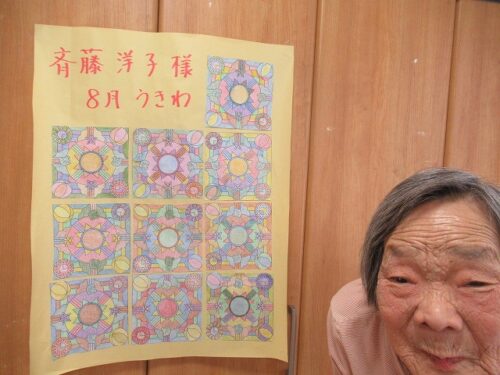 斉藤 洋子 様
8月 うきわ